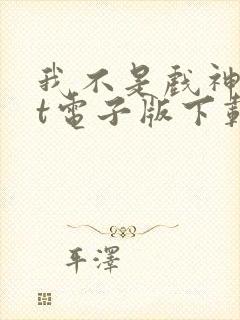 我不是戲神
t電子版下載
平澤